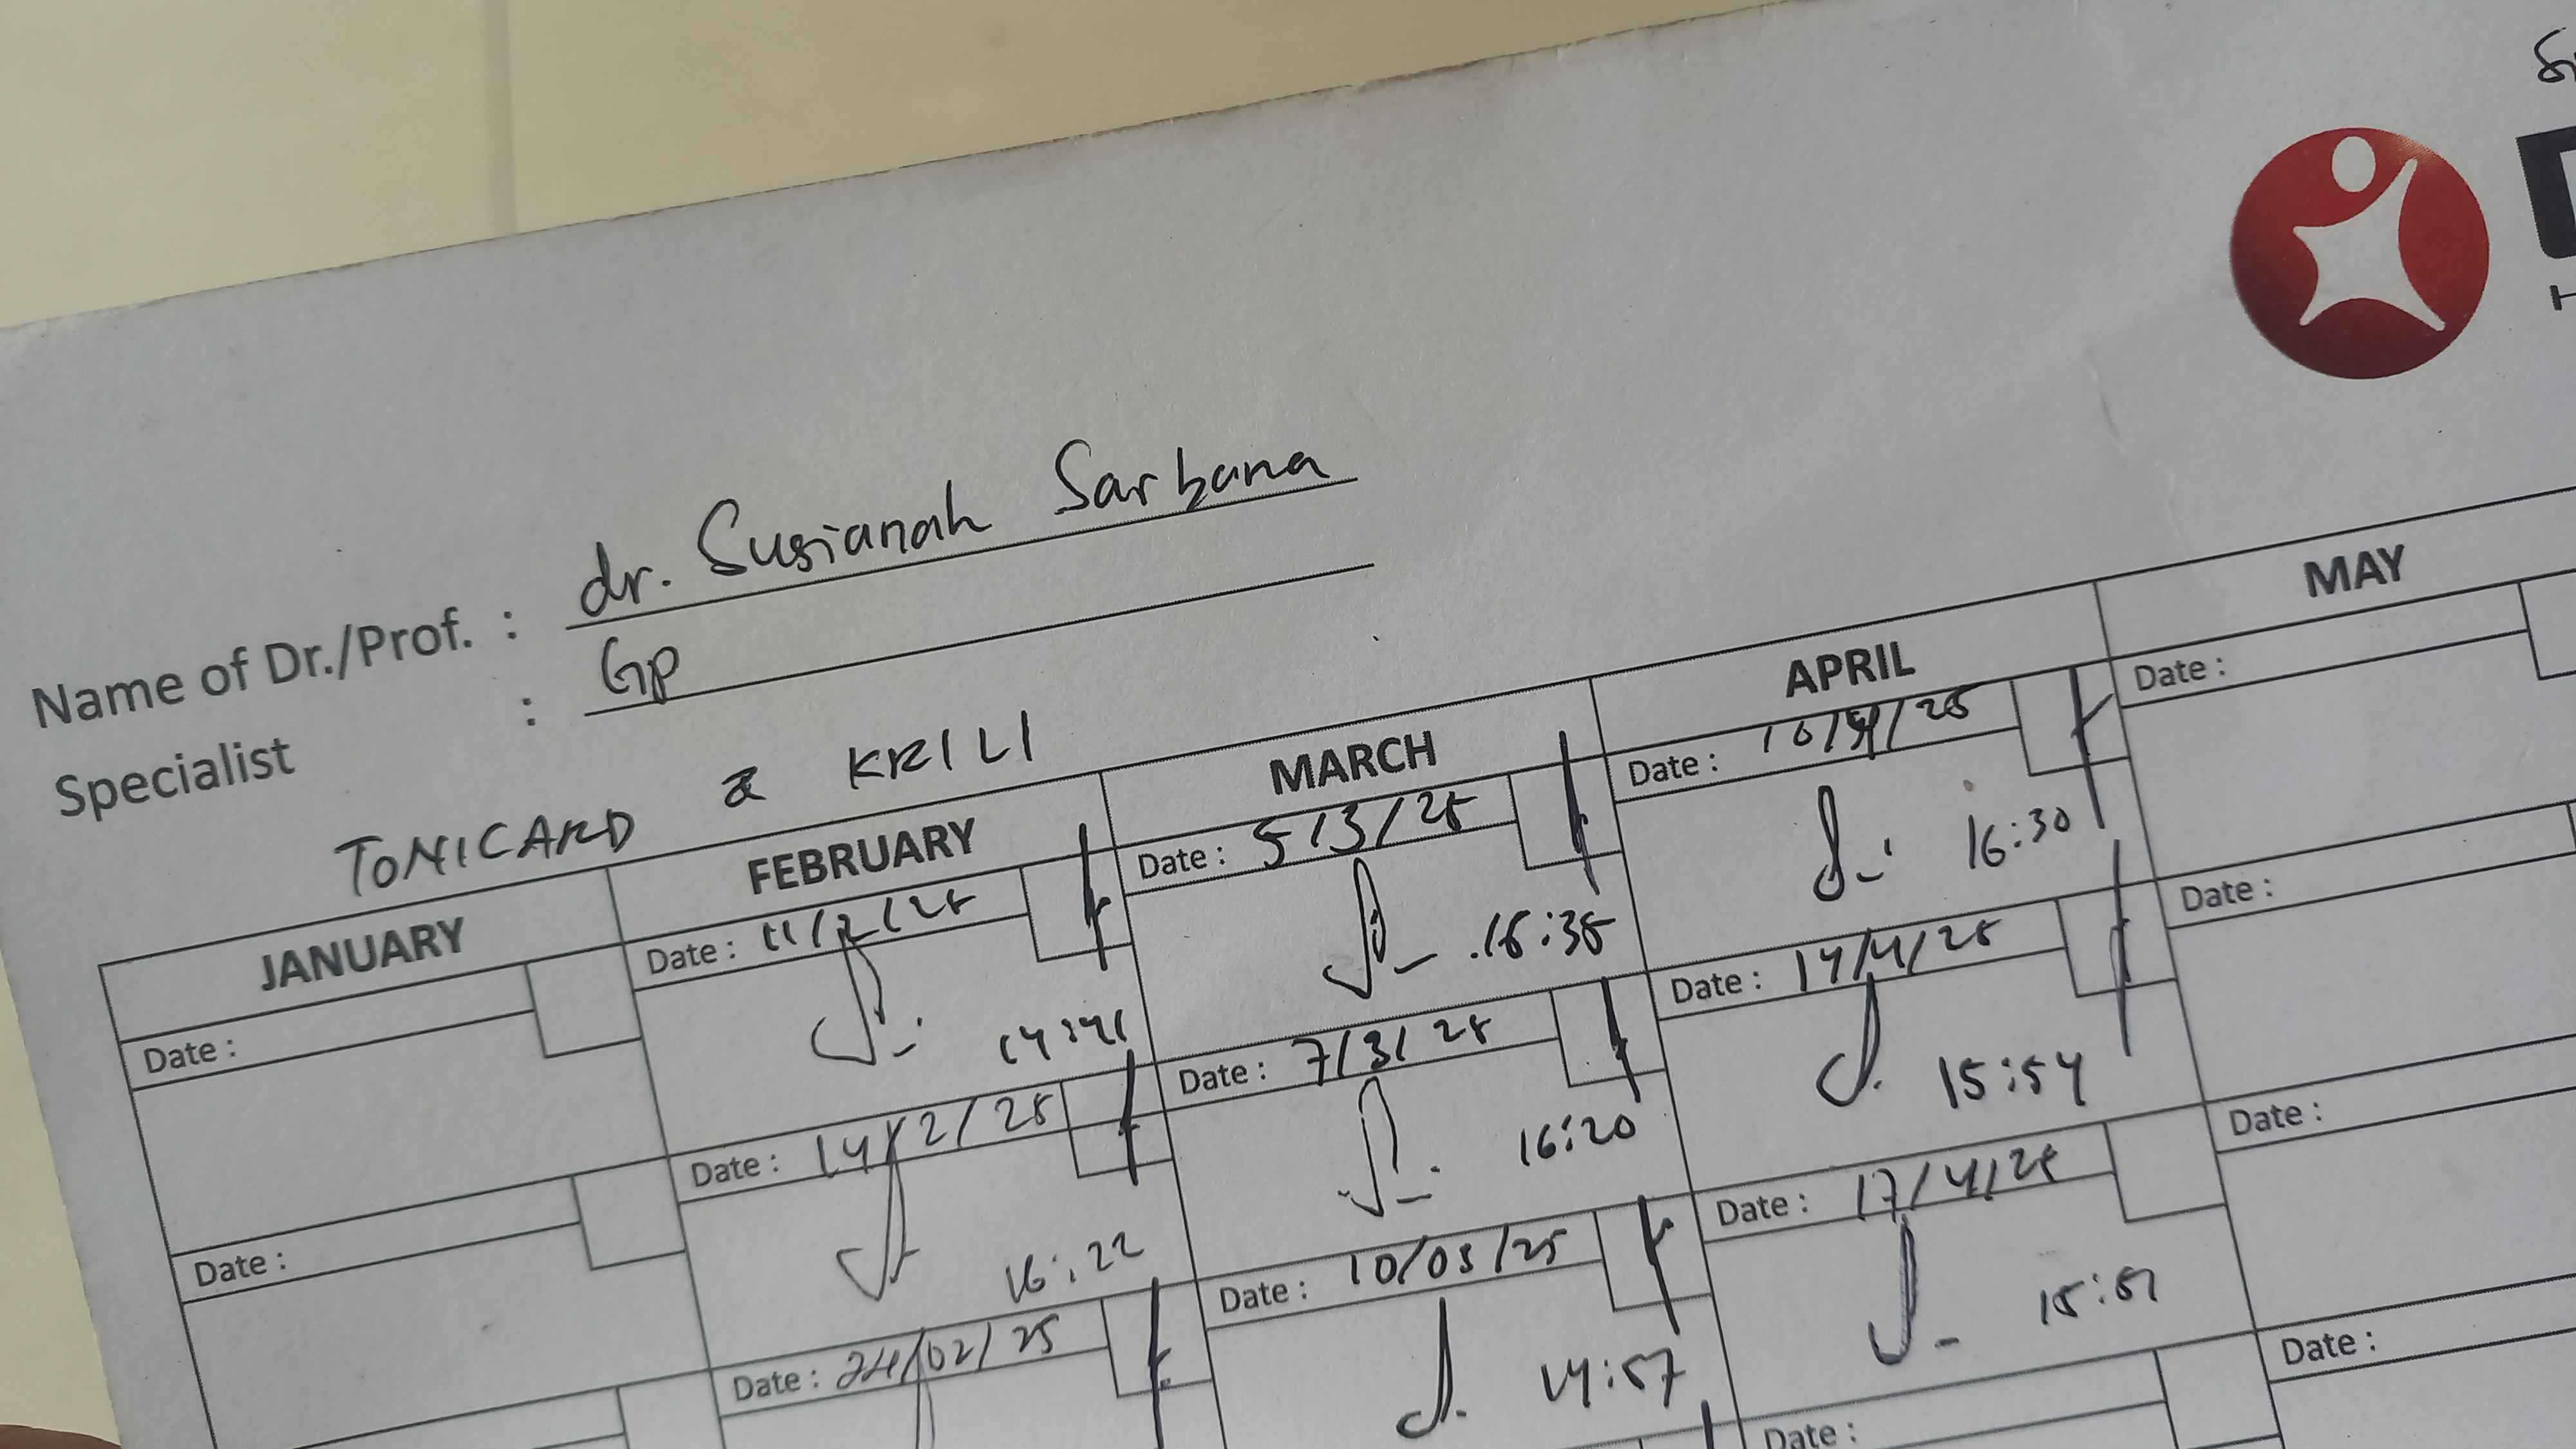 Name of Dr./Prof. : dr. Susianah Sarbana
Specialist : Gp
TONICARD & KRILI
JANUARY FEBRUARY MARCH APRIL MAY
Date : Date : 11/2/25 Date : 5/3/25 Date : 10/4/25 Date :
14:41 15:35 16:30
Date : Date : 14/2/25 Date : 7/3/25 Date : 14/4/25 Date :
16:22 16:20 15:54
Date : 24/02/25 Date : 10/03/25 Date : 17/4/25 Date :
14:57 15:51
Date : Date :